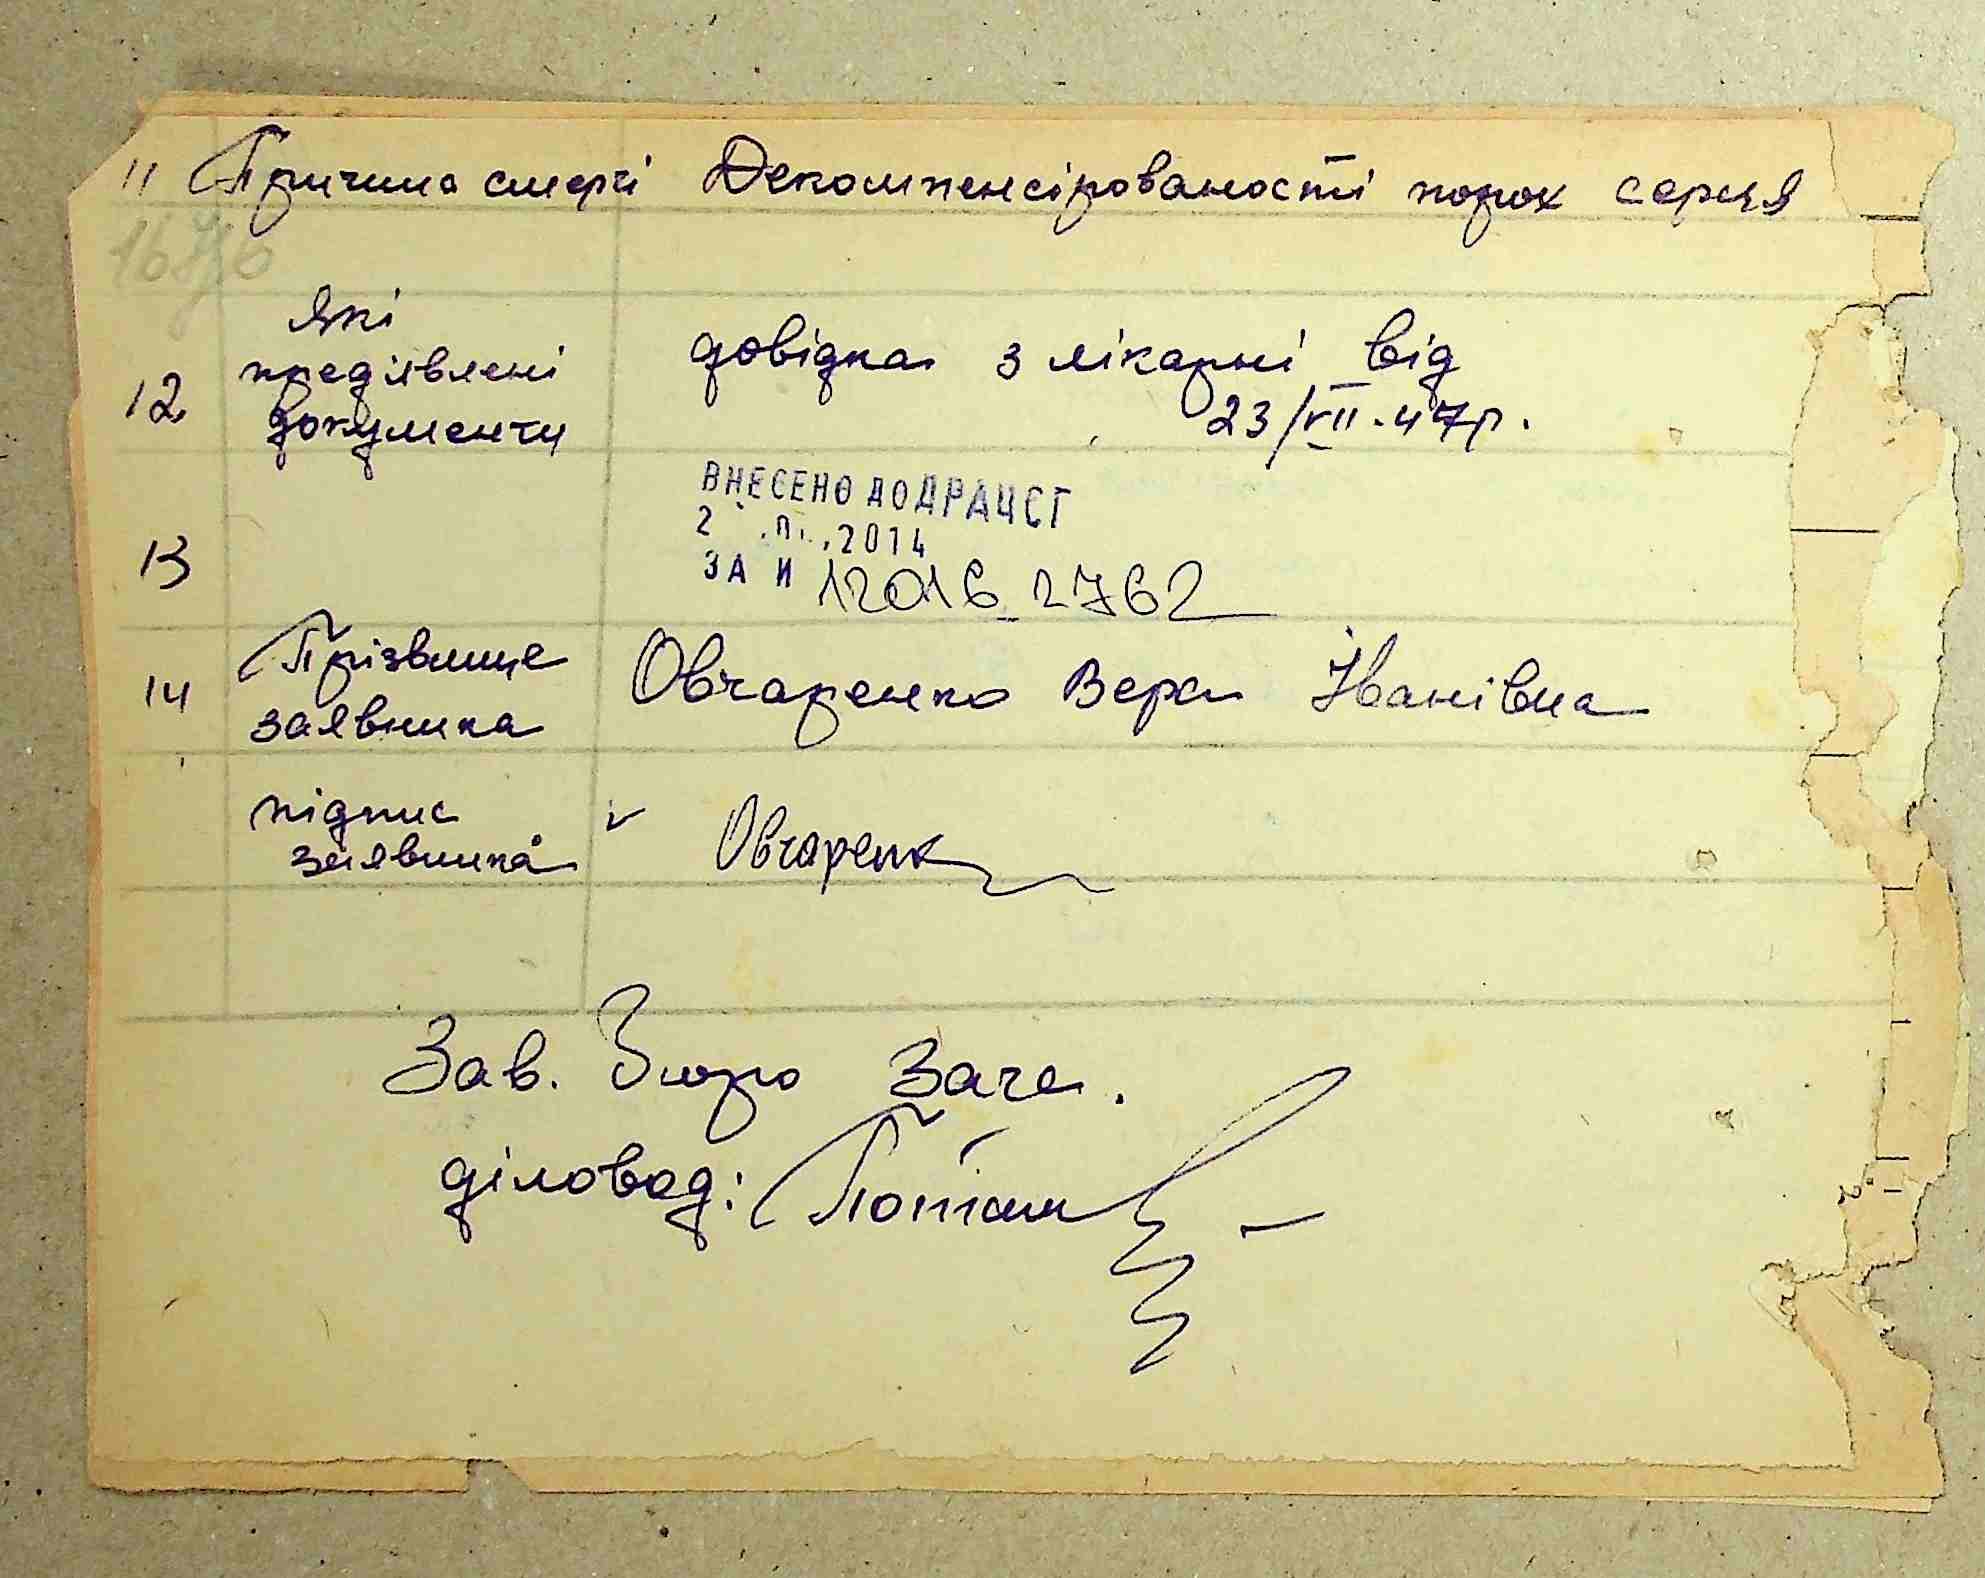 11 Причина смерті Декомпенсірованості порок серця
1676
які
предіявлені довідка з лікарні від
12 документи 23/VII.47р.
ВНЕСЕНО ДО ДРАЦСГ
2 2014
13 ЗА И 12016 2762
14 Прізвище Овчаренко Вера Іванівна
заявника
підпис v Овчаренк
заявника
Зав. Бюро Загс.
діловод: